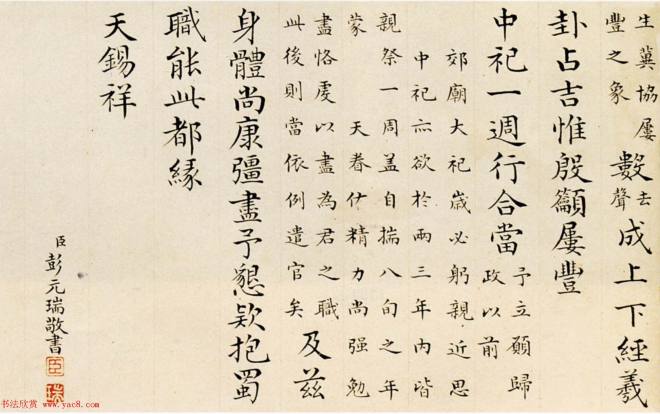 生冀協屢
豐之象
數去聲成上下經羲
卦占吉惟殷籲屢豐
中祀一週行合當予立願歸
政以前
郊廟大祀歲必躬親近思
中祀亦欲於兩三年內皆
親祭一周蓋自揣八旬之年
蒙天眷佑精力尚強勉
盡恪虔以盡為君之職
此後則當依例遣官矣及茲
身體尚康彊盡予懇欵抱蜀
職能此都緣
天錫祥
臣彭元瑞敬書
臣
瑞
书法欣赏 www.yac8.com